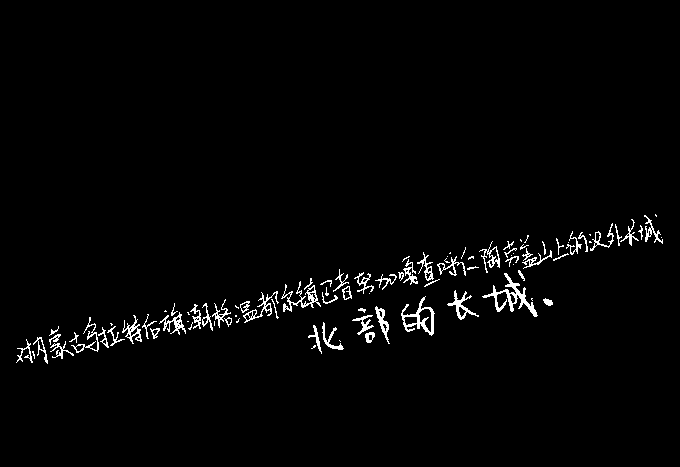 对内蒙古乌拉特后旗潮格温都尔镇巴音努如嘎查呼仁陶劳盖山上的汉外长城
北部的长城.